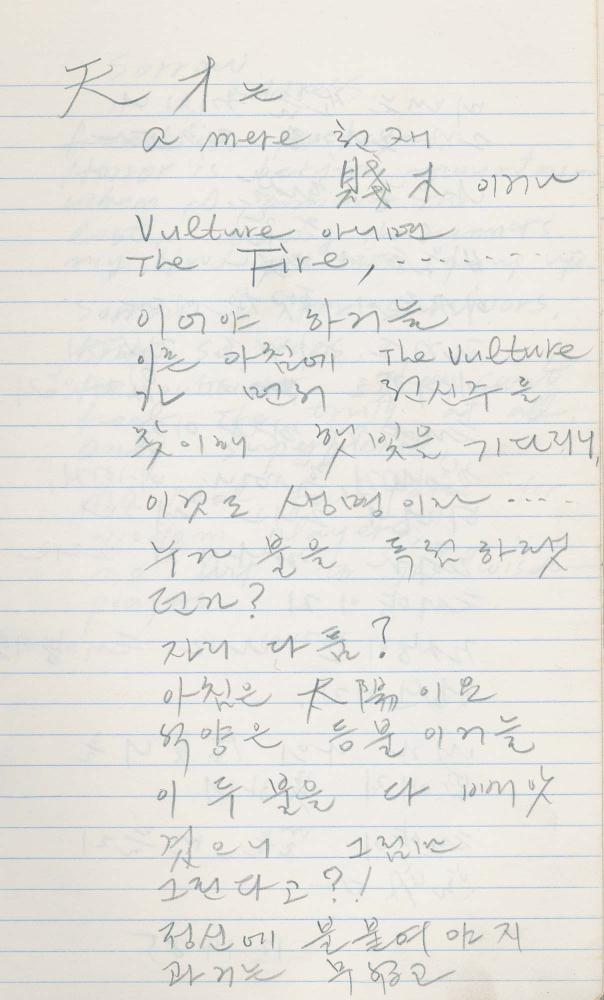 天才는
a mere 천재
賤才 이거나
Vulture 아니면
The Fire, ..........
이어야 하거늘
이른 아침에 The Vulture
가 먼저 전신주를
찾이해 햇빛을 기다리니,
이것도 생명이라 ....
누가 불을 독점 하려섯
던가?
자리 다툼?
아침은 太陽이요
석양은 등불이거늘
이 두 불을 다 빼앗
겼으니 그림만
그린다고?!
정신에 불붙여야지
과거는